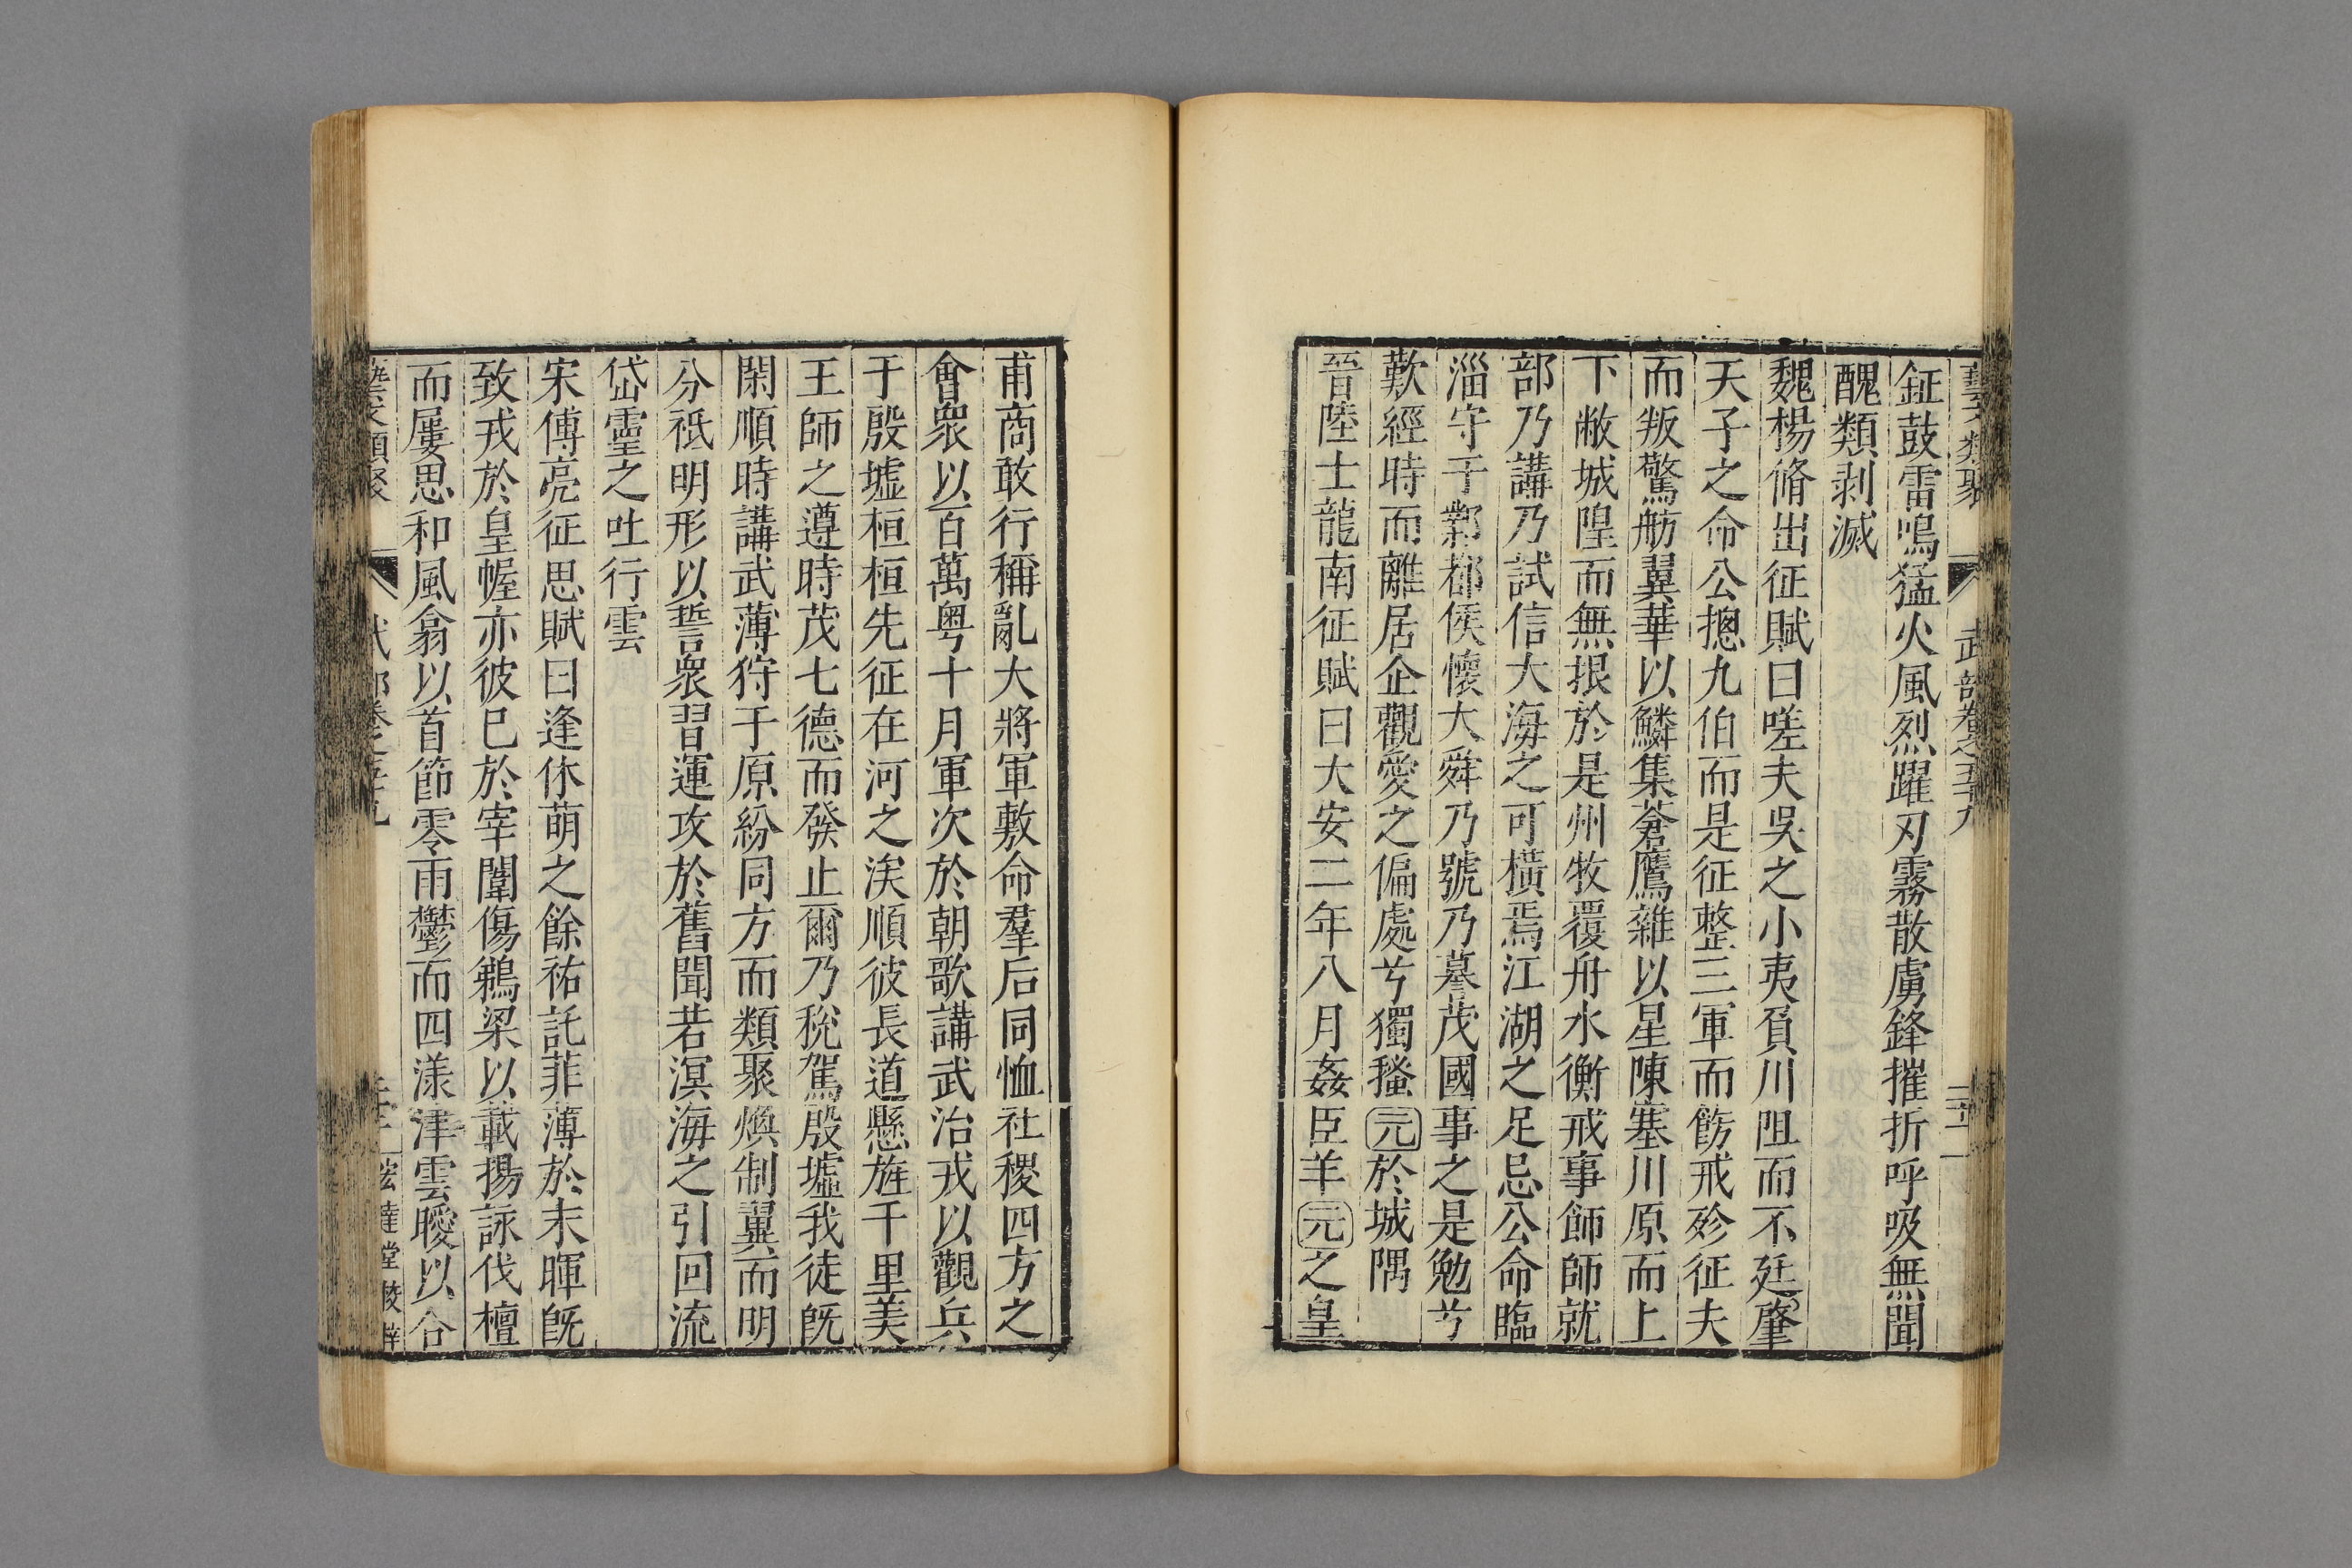 藝文類聚 武部卷之五十九
鉦鼓雷鳴猛火風烈躍刃霧散虜鋒摧折呼吸無聞
醜類剥滅
魏楊脩出征賦曰嗟夫吳之小夷負川阻而不廷肇
天子之命公揔九伯而是征整三軍而飭戒殄征夫
而叛驚舫翼華以鱗集蒼鷹雜以星陳塞川原而上
下敝城隍而無垠於是州牧覆舟水衡戒事餙師就
部乃講乃試信大海之可橫焉江湖之足忌公命臨
淄守于鄴都侯懷大舜乃號乃慕茂國事之是勉兮
歎經時而離居企觀愛之偏處兮獨搔元於城隅
晉陸士龍南征賦曰大安二年八月姦臣羊元之皇
甫商敢行稱亂大將軍敷命羣后同恤社稷四方之
會衆以百萬粤十月軍次於朝歌講武治戎以觀兵
于殷墟桓桓先征在河之涘順彼長道懸旌千里美
王師之遵時茂七德而發止爾乃稅駕殷墟我徒旣
閑順時講武薄狩于原紛同方而類聚煥制翼而明
分祗明形以誓衆習運攻於舊聞若溟海之引回流
岱靈之吐行雲
宋傅亮征思賦曰逢休萌之餘祐託菲薄於末暉旣
致戎於皇幄亦彼巳於宰闈傷鵜梁以載揚詠伐檀
而屢思和風翕以首節零雨鬱而四漾津雲曖以合
藝文類聚 武部卷之五十九 宏達堂校梓